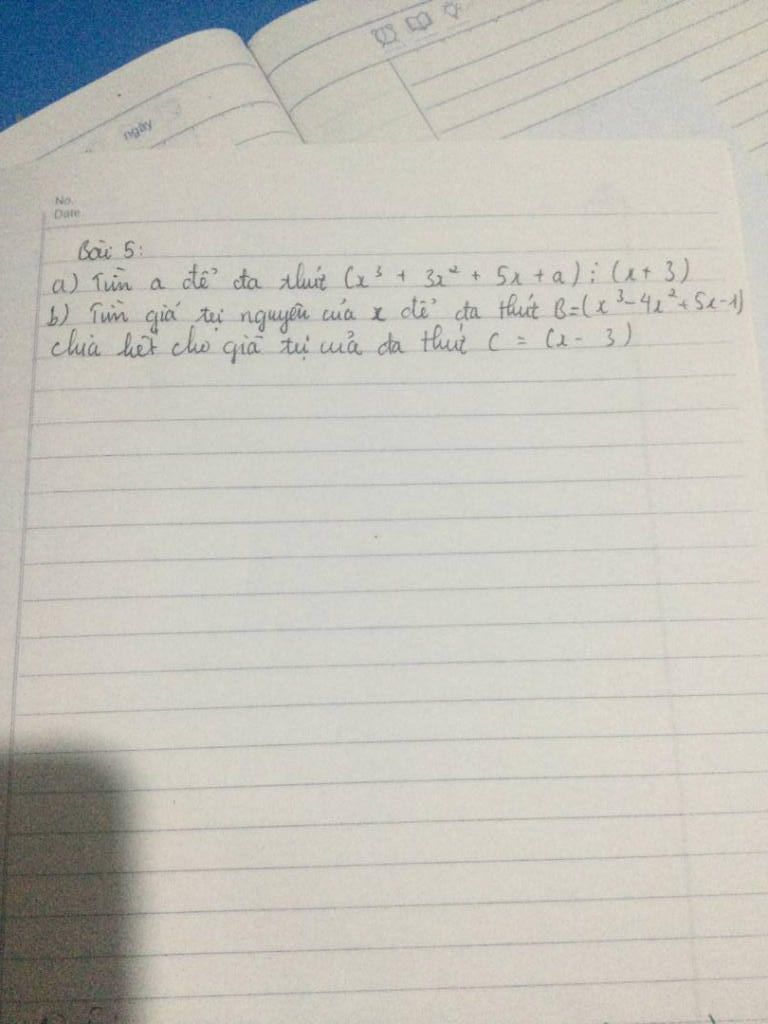 ngày
No.
Date
Bài 5:
a) Tìm a để đa thức (x³ + 3x² + 5x + a) ⋮ (x + 3)
b) Tìm giá trị nguyên của x để đa thức B = (x³ - 4x² + 5x - 1)
chia hết cho giá trị của đa thức C = (x - 3)